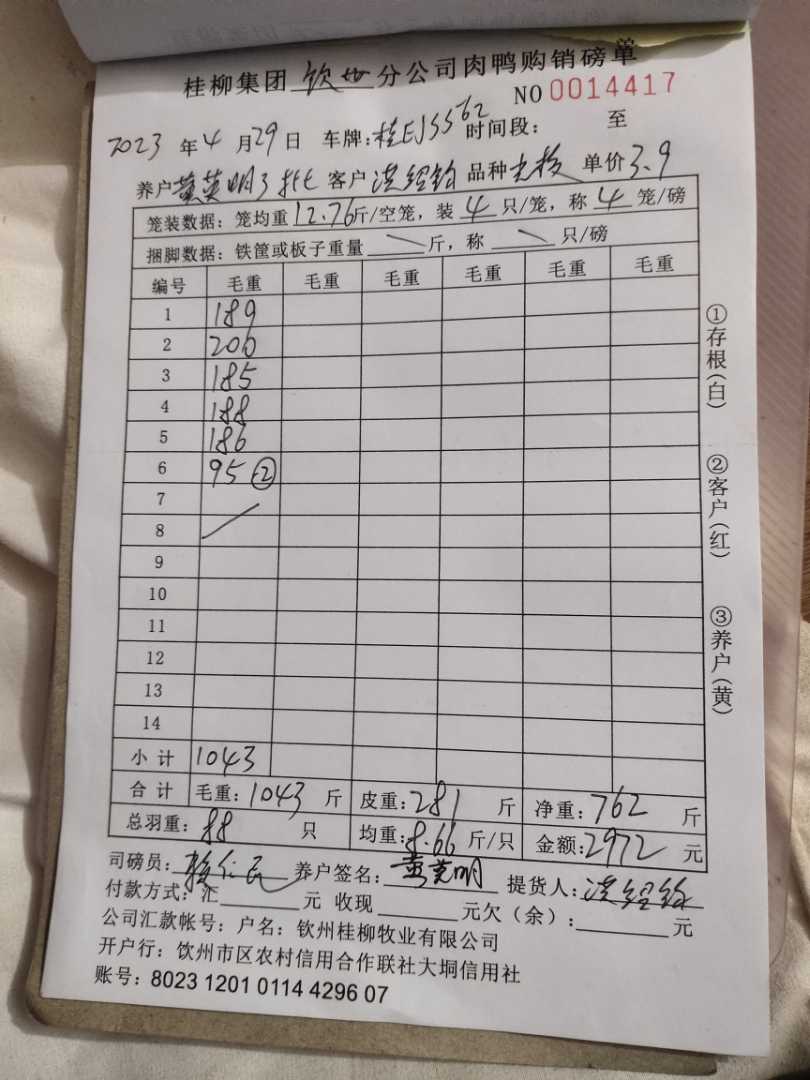 桂柳集团 钦州 分公司肉鸭购销磅单
NO 0014417
2023 年 4 月 29 日 车牌:桂EJ5562 时间段: 至
养户 黄英明 客户 洪绍 品种 单价 3.9
笼装数据: 笼均重 12.76 斤/空笼, 装 4 只/笼, 称 4 笼/磅
捆脚数据: 铁筐或板子重量 斤, 称 只/磅
编号 毛重 毛重 毛重 毛重 毛重 毛重
1 189
2 200
3 185
4 188
5 186
6 95 ②
7
8
9
10
11
12
13
14
小 计 1043
合 计 毛重: 1043 斤 皮重: 281 斤 净重: 762 斤
总羽重: 88 只 均重: 8.66 斤/只 金额: 2972 元
司磅员: 养户签名: 黄英明 提货人: 洪绍
付款方式: 汇 元 收现 元欠(余): 元
公司汇款帐号: 户名: 钦州桂柳牧业有限公司
开户行: 钦州市区农村信用合作联社大垌信用社
账号: 8023 1201 0114 4296 07
①存根(白)
②客户(红)
③养户(黄)